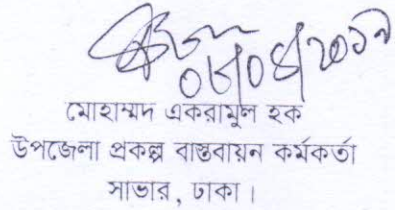 মোহাম্মদ একরামুল হক
উপজেলা প্রকল্প বাস্তবায়ন কর্মকর্তা
সাভার, ঢাকা।